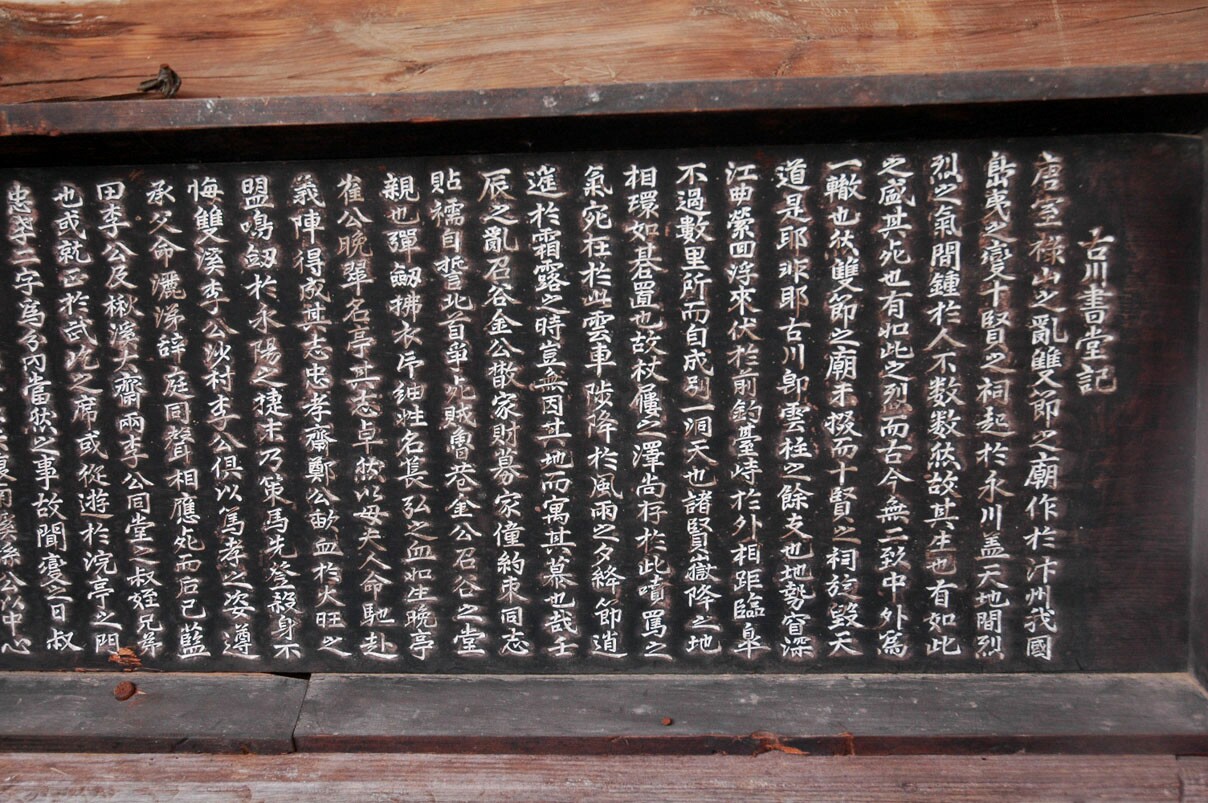 古川書堂記
唐室祿山之亂雙節之廟作於汴州我國
島夷之變十賢之祠起於永川盖天地間烈
烈之氣間鍾於人不数数然故其生也有如此
之盛其死也有如此之烈而古今無二致中外爲
一轍也然雙節之廟未掇而十賢之祠旋毀天
道是耶非耶古川卽雲柱之餘支也地勢窅深
江曲縈回洊來伏於前釣臺峙於外相距臨皐
不過數里所而自成別一洞天也諸賢嶽降之地
相環如碁置也故杖屨之澤尚存於此噴罵之
氣宛在於此雲車陟降於風雨之夕絳節逍
遙於霜露之時豈無因其地而寓其慕也哉壬
辰之亂召谷金公散家財募家僮約束同志
貼襦自誓北首爭死賊魯巷金公召谷之堂
親也彈劒拂衣斥紬姓名長弘之血如生晩亭
崔公晩翠名亭其志卓然以母夫人命馳赴
義陣得成其志忠孝齋鄭公歃血於火旺之
盟鳴劒於永陽之捷末乃策馬先登殺身不
悔雙溪李公沙村李公俱以篤孝之姿遵
承父命灑涕辭庭同聲相應死而后已藍
田李公及楸溪大齋兩李公同堂之叔姪兄弟
也或就正於武屹之席或從遊於浣亭之門
忠孝二字爲分內當然之事故聞變之日叔